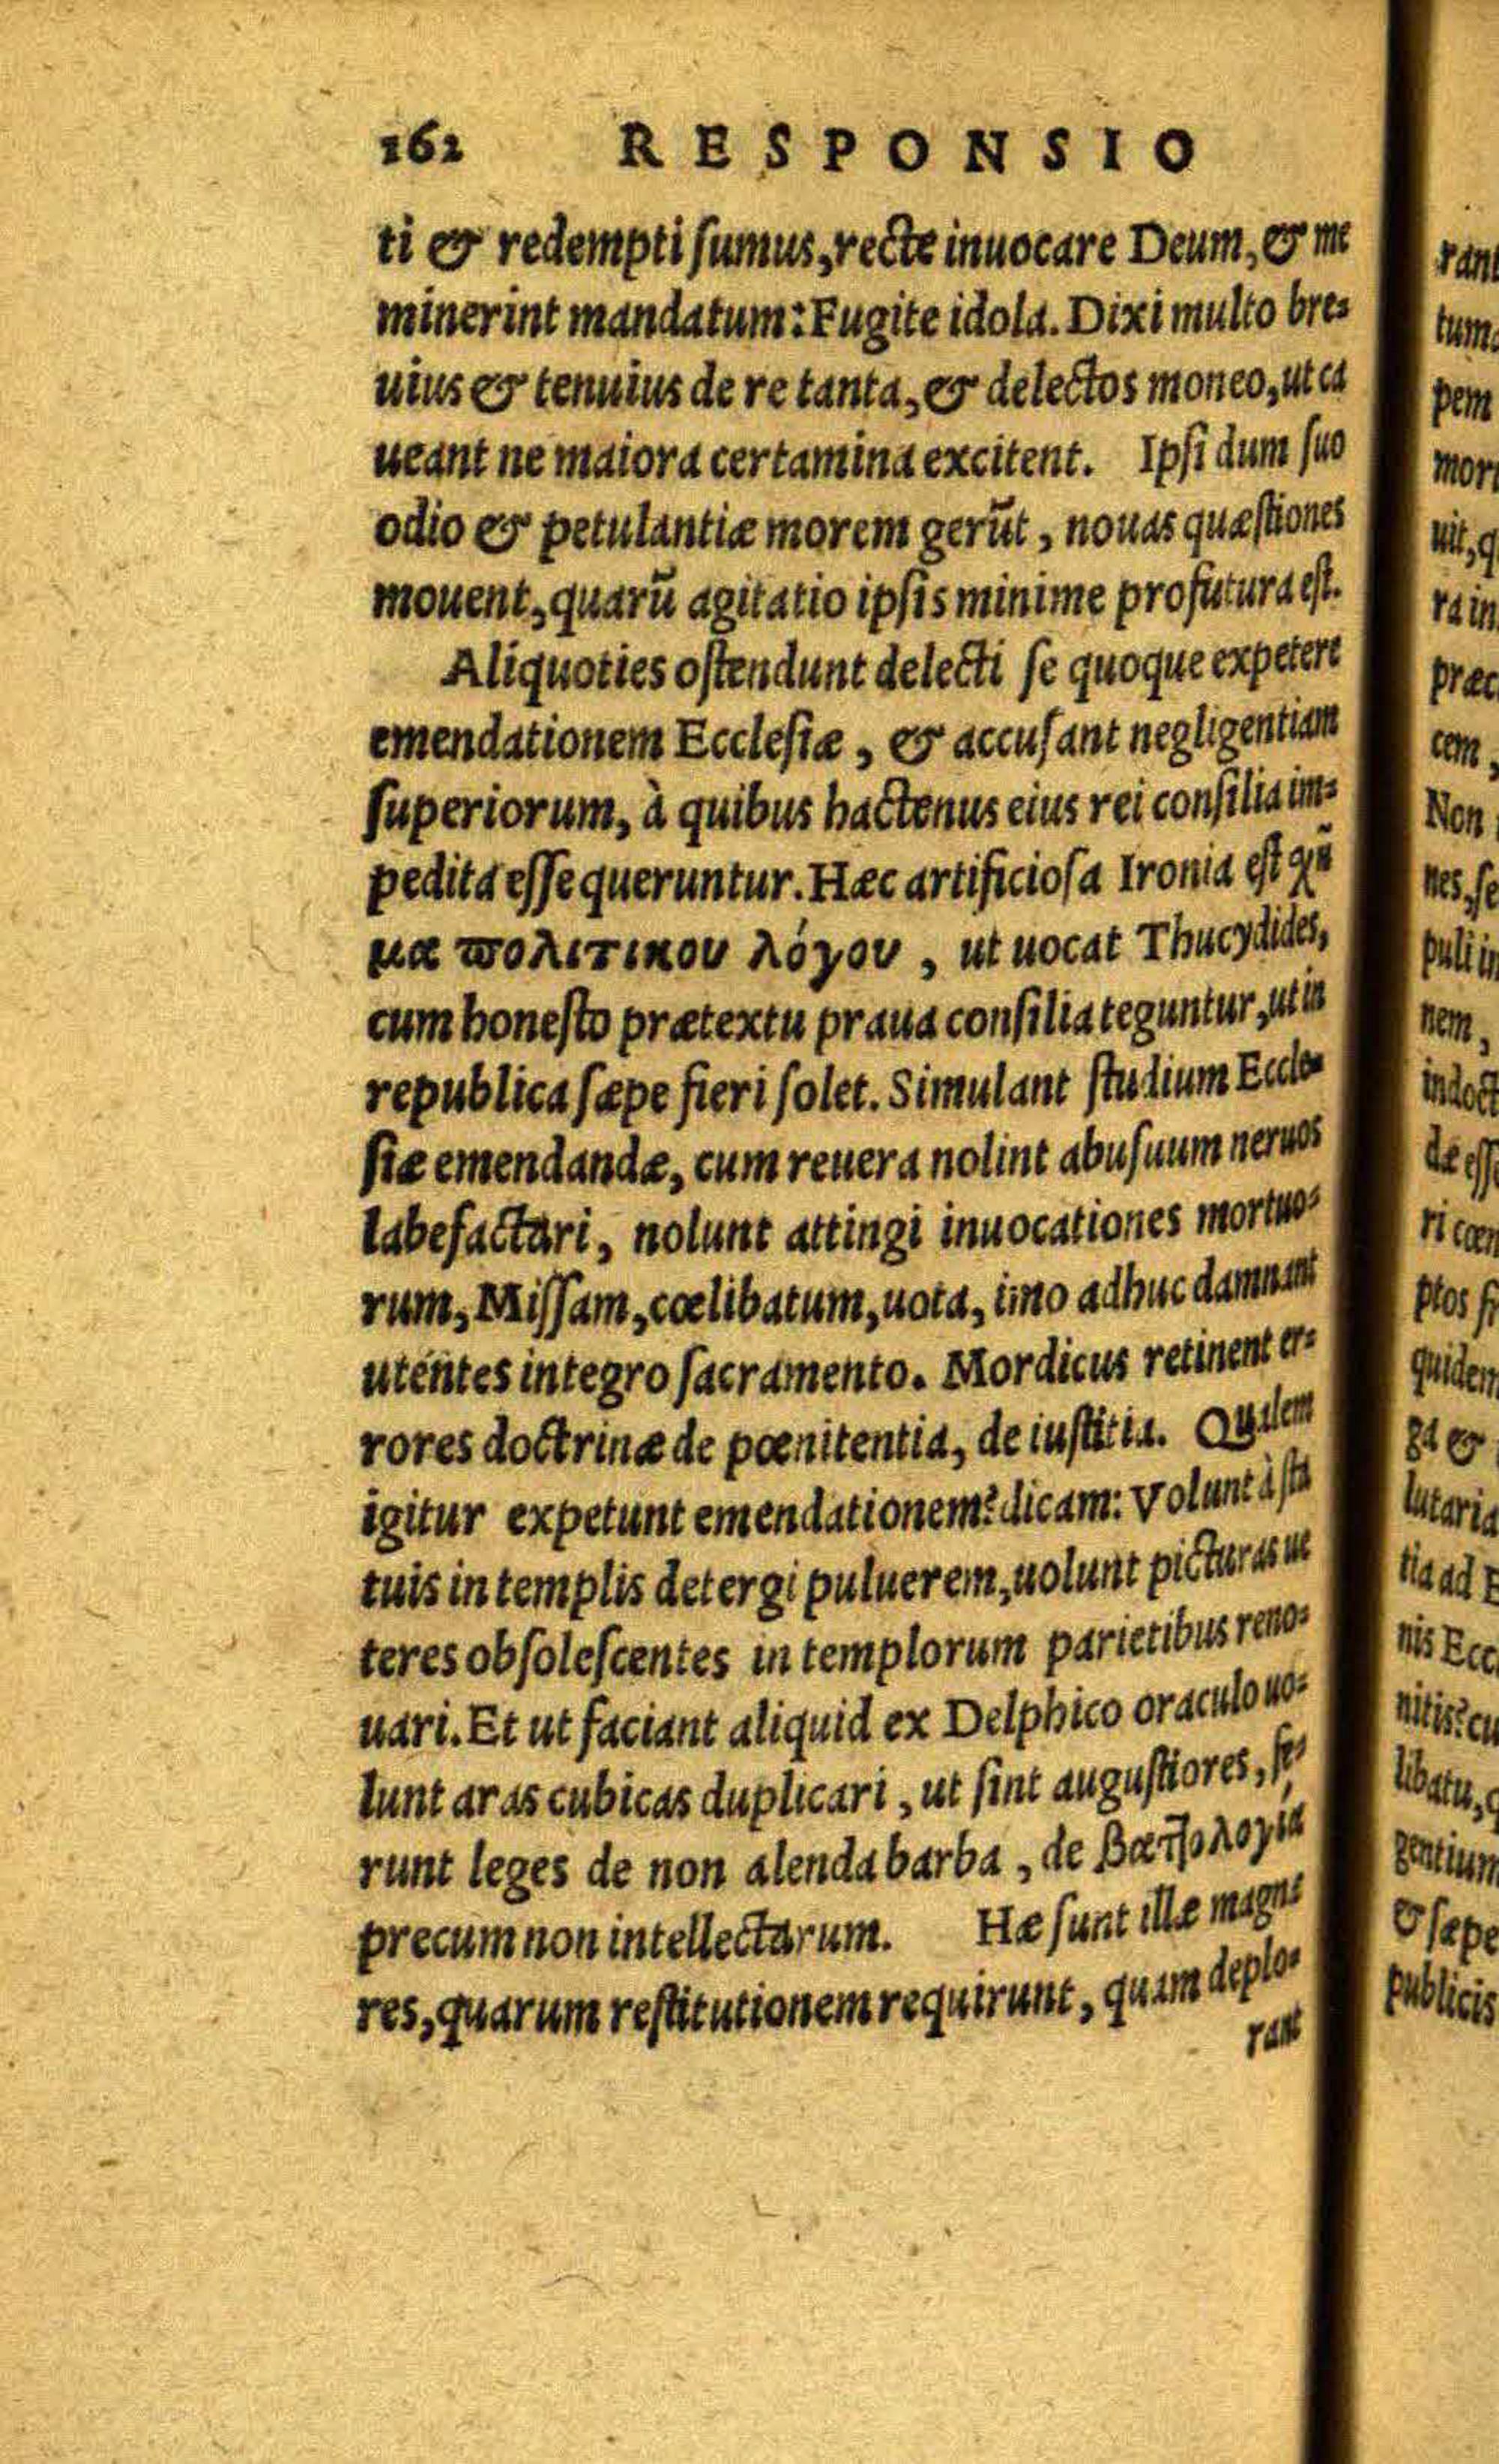 162 RESPONSIO
ti & redempti sumus, recte inuocare Deum, & me
minerint mandatum: Fugite idola. Dixi multo bre-
uius & tenuius de re tanta, & delectos moneo, ut ca
ueant ne maiora certamina excitent. Ipsi dum suo
odio & petulantiæ morem gerūt, nouas quæstiones
mouent, quarū agitatio ipsis minime profutura est.
Aliquoties ostendunt delecti se quoque expetere
emendationem Ecclesiæ, & accusant negligentiam
superiorum, à quibus hactenus eius rei consilia im-
pedita esse queruntur. Hæc artificiosa Ironia est χῆ
μα πολιτικου λόγου, ut uocat Thucydides,
cum honesto prætextu praua consilia teguntur, ut in
republica sæpe fieri solet. Simulant studium Eccle-
siæ emendandæ, cum reuera nolint abusuum neruos
labefactari, nolunt attingi inuocationes mortuo-
rum, Missam, cœlibatum, uota, imo adhuc damnant
uténtes integro sacramento. Mordicus retinent er-
rores doctrinæ de pœnitentia, de iustitia. Qualem
igitur expetunt emendationem? dicam: Volunt à sta
tuis in templis detergi puluerem, uolunt picturas ue
teres obsolescentes in templorum parietibus reno-
uari. Et ut faciant aliquid ex Delphico oraculo uo-
lunt aras cubicas duplicari, ut sint augustiores, fe-
runt leges de non alenda barba, de Βαττολογία
precum non intellectarum. Hæ sunt illæ magnæ
res, quarum restitutionem requirunt, quam deplo-
rant
rant
pem
cem,
Non
nem,
quidem
ga &
nis Eccl
& sæpe
publicis